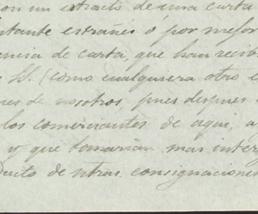 con un extracto de una carta
bastante estraños ó por mejor
encia de carta, que han recib
S. (como cualquiera otro e
nes de nosotros, pues despues
los comerciantes de aqui, a
y que tomarian mas inter
ducto de otras consignacione